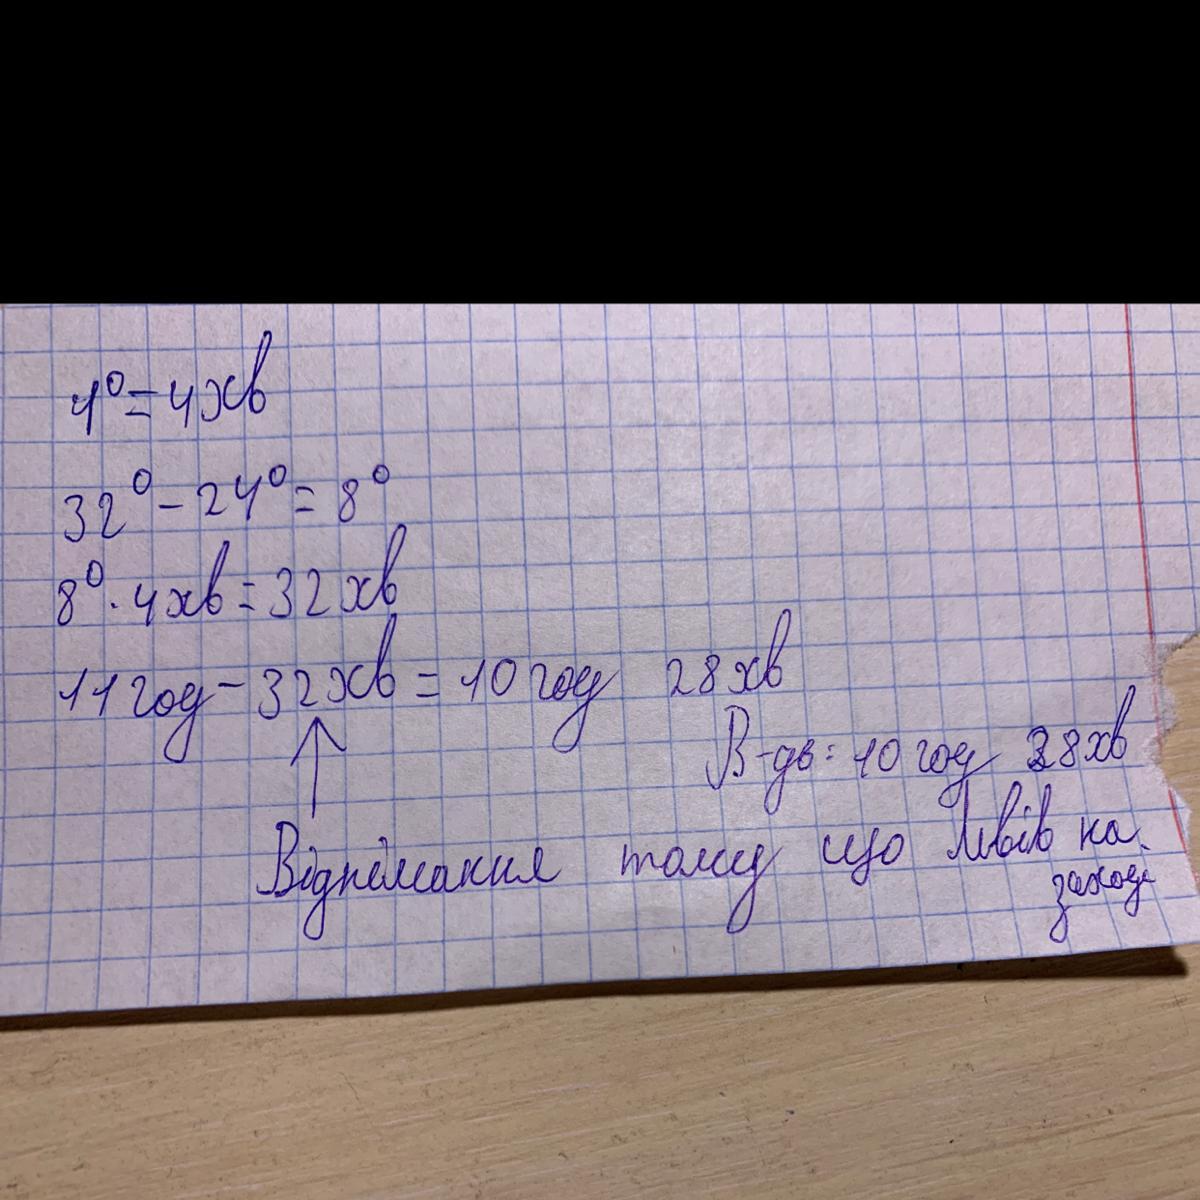 1⁰=4хв
32⁰-24⁰=8⁰
8⁰·4хв=32хв
11год-32хв=10год 28хв
В-дь: 10год 28хв
Віднімання тому що Львів на
заході